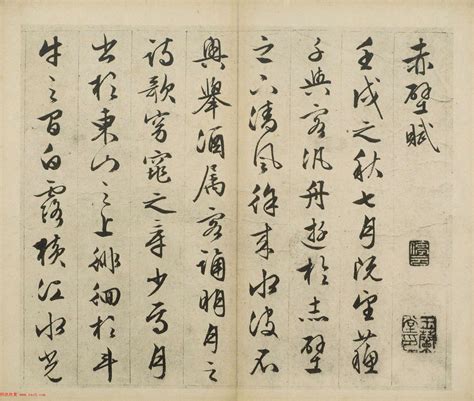 赤壁賦
壬戌之秋七月既望蘇
子與客汎舟遊於赤壁
之下清風徐來水波不
興舉酒属客誦明月之
詩歌窈窕之章少焉月
出於東山之上徘徊於斗
牛之間白露横江水光
玉蘭堂印